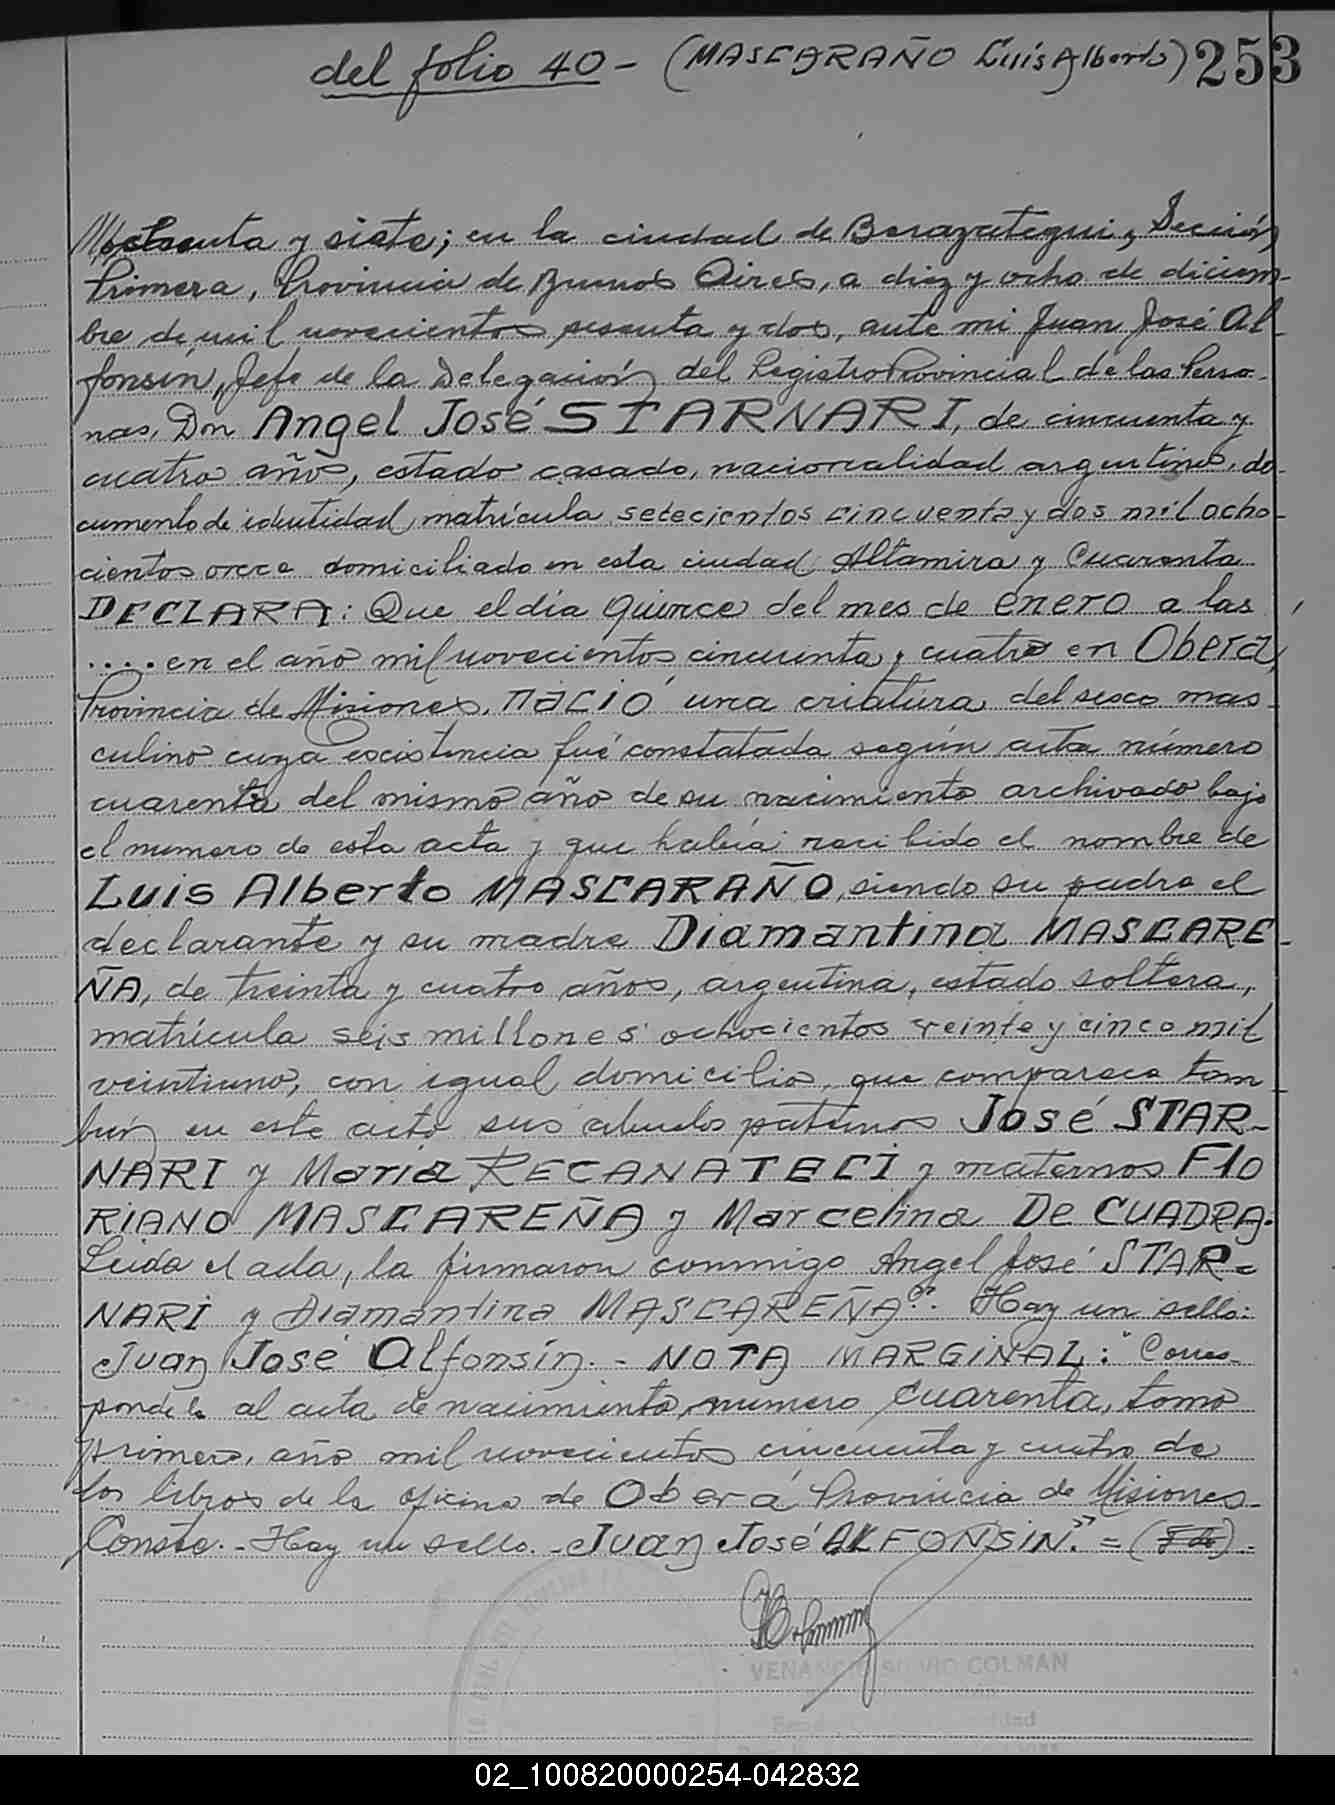 del folio 40 - (MASCARAÑO Luis Alberto) 253
y siete; en la ciudad de Berazategui, Sección
Primera, Provincia de Buenos Aires, a diez y ocho de diciem-
bre de mil novecientos sesenta y dos, ante mi Juan José Al-
fonsín, Jefe de la Delegación del Registro Provincial de las Perso-
nas, Don Angel José STARNARI, de cincuenta y
cuatro años, estado casado, nacionalidad argentino, do-
cumento de identidad, matrícula setecientos cincuenta y dos mil ocho-
cientos once domiciliado en esta ciudad Altamira y Cuarenta
DECLARA: Que el día quince del mes de enero a las
.... en el año mil novecientos cincuenta y cuatro en Oberá,
Provincia de Misiones, nació una criatura del sexo mas-
culino cuya existencia fué constatada según acta número
cuarenta del mismo año de su nacimiento archivado bajo
el numero de esta acta y que había recibido el nombre de
Luis Alberto MASCARAÑO, siendo su padre el
declarante y su madre Diamantina MASCARE-
ÑA, de treinta y cuatro años, argentina, estado soltera,
matrícula seis millones ochocientos veinte y cinco mil
veintiuno, con igual domicilio, que comparece tam-
bién en este acto sus abuelos paternos José STAR-
NARI y María RECANATECI y maternos Flo
RIANO MASCAREÑA y Marcelina De CUADRA.
Leida el acta, la firmaron conmigo Angel José STAR=
NARI y Diamantina MASCAREÑA". Hay un sello:
Juan José Alfonsín. - NOTA MARGINAL: "Corres-
ponde al acta de nacimiento numero cuarenta, tomo
primero, año mil novecientos cincuenta y cuatro de
los libros de la oficina de Oberá Provincia de Misiones.
Conste. - Hay un sello. - Juan José ALFONSIN." =
VENANCIO SILVIO COLMAN
02_100820000254-042832